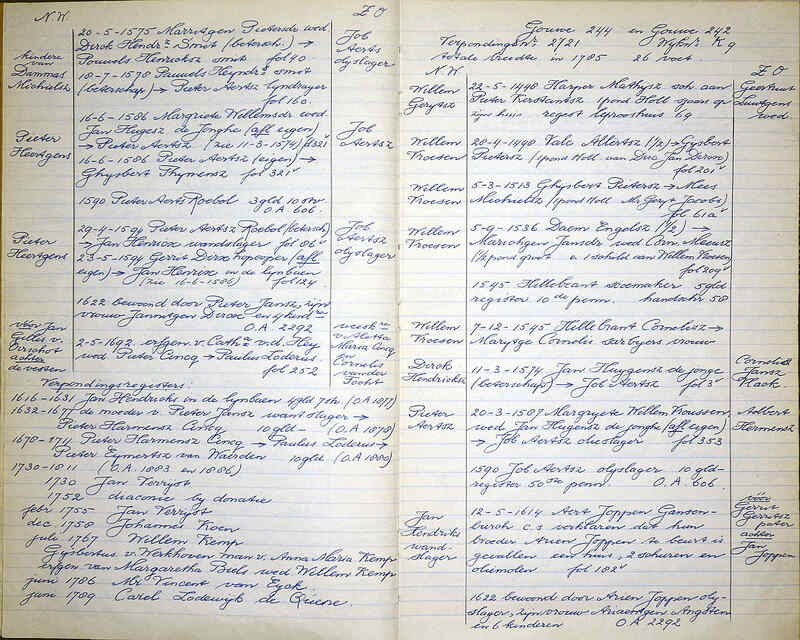 N.W.
Z.O
20-5-1575 Marritgen Pietersdr wed
Dirck Hendr.z Smit (betersch.) →
Pouwels Henricksz smit fol 40.
Job
Aerts
olyslager
kindere
van
Dammas
Michielsz
18-7-1578 Pouwels Heyndr.z smit
(beterschap) → Pieter Aertsz lyndrayer
fol 160.
16-6-1586 Margriete Willemsdr wed
Jan Hugesz de Jonghe (afl eigen)
→ Pieter Aertsz (zie 11-3-1574) f 321v
Pieter
Heertgens
Job
Aertsz
16-6-1586 Pieter Aertsz (eigen) →
Ghysbert Thymensz fol 321v
1590 Pieter Aerts Roebol 3gld 10 stv.
O.A 606.
29-4-1594 Pieter Aertsz Roebol (betersch)
→ Jan Henricx wandslager fol 86v
Pieter
Heertgens
Job
Aertsz
olyslager
23-5-1594 Gerrit Dircx (afl
eigen) → Jan Henricx in de lynbaen
(zie 16-6-1586) fol 124.
1622 bewoond door Pieter Jansz, zijn
vrouw Janntgen Dircxdr en 4 kindre
O.A. 2292
vóór Jan
Gillis v.
Oirschot
achter
de vesten
2-5-1692 erfgen. v. Cathe v.d. Hey
wed Pieter Cincq → Paulus Loderus.
fol 252
weesk.re
v Aletta
Maria Cincq
en
Cornelis
vander
Tocht
Verpondingsregisters:
1616-1631 Jan Hendricks in de lynbaen 4gld 7st. (O.A 1877)
1632-1677 de moeder v. Pieter Jansz wantslager →
Pieter Hermensz Cincq 10gld- (O.A 1878)
1678-1711 Pieter Hermensz Cincq → Paulus Loderus →
Pieter Eymertsz van Waerden 10gld (O.A 1880)
1730-1811 (O.A. 1883 en 1886)
1730 Jan Verryst
1752 diaconie by donatie
febr 1755 Jan Verryst
dec 1758 Johannes Koen
julie 1767 Willem Kemp
Gysbertus v. Werkhoven man v. Anna Maria Kemp
erfgen van Margaretha Biels wed Willem Kemp
junij 1786 Mr Vincent van Eyck
junij 1789 Carel Lodewyk de
Gouwe 244 en Gouwe 242
Verpondingnr 2/21 Wijknr K 9
totale breedte in 1785 26 voet.
N.W.
Z O
Willem
Gerytsz
22-5-1448 Harper Mathysz sch. aan
Pieter Kerstantsz 1 pond Holl op
zijns huis regest leprooshuis 69
Geertruut
Luutgens
wed
Willem
Vroesen
28-4-1498 Valc Allertsz (1/2) → Gysbert
Pietersz (1 pond Holl van Dirc Jan Dircx)
fol 201v
Willem
Vroesen
5-3-1513 Ghysbert Pietersz → Mees
Michielsz (1 pond Holl Mr Geryt Jacobs)
fol 61a v
Willem
Vroesen
5-9-1536 Daem Engelsz (1/2) →
Marichgen Jansdr wed Corn. Meeusz
(1/2 pond groot en 1 schild van Willem Vroesen)
fol 204v
1545 Hillebrant 5gld
register 10de penn. handschr 58
Willem
Vroesen
7-12-1545 Hillebrant Cornelisz →
Marytge Cornelis vrouw
Dirck
Hendricksz
11-3-1574 Jan Huygensz de jonge
(beterschap) → Job Aertsz fol 3v
Cornelis
Jansz
Kaeck.
Pieter
Aertsz
20-3-1587 Margryete Willem Vroussen
wed Jan Hugensz de jonghe (afl eigen)
→ Job Aertsz olieslager fol 353
Aelbert
Hermensz
1590 Job Aertsz olyslager 10 gld-
register 50ste penn. O.A 606.
Jan
Hendriks
wand-
slager
12-5-1614 Aert Joppen Gansen-
burch c.s verklaren dat hun
broeder Arien Joppen te beurt is
gevallen een huis, 2 schuren en
oliemolen fol 182v
vóór
Gerrit
Gerritsz
peter
achter
Jan
Joppen
1622 bewoond door Arien Joppen oly-
slager, zijn vrouw Ariaentgen Angsten
en 6 kinderen O.A 2292